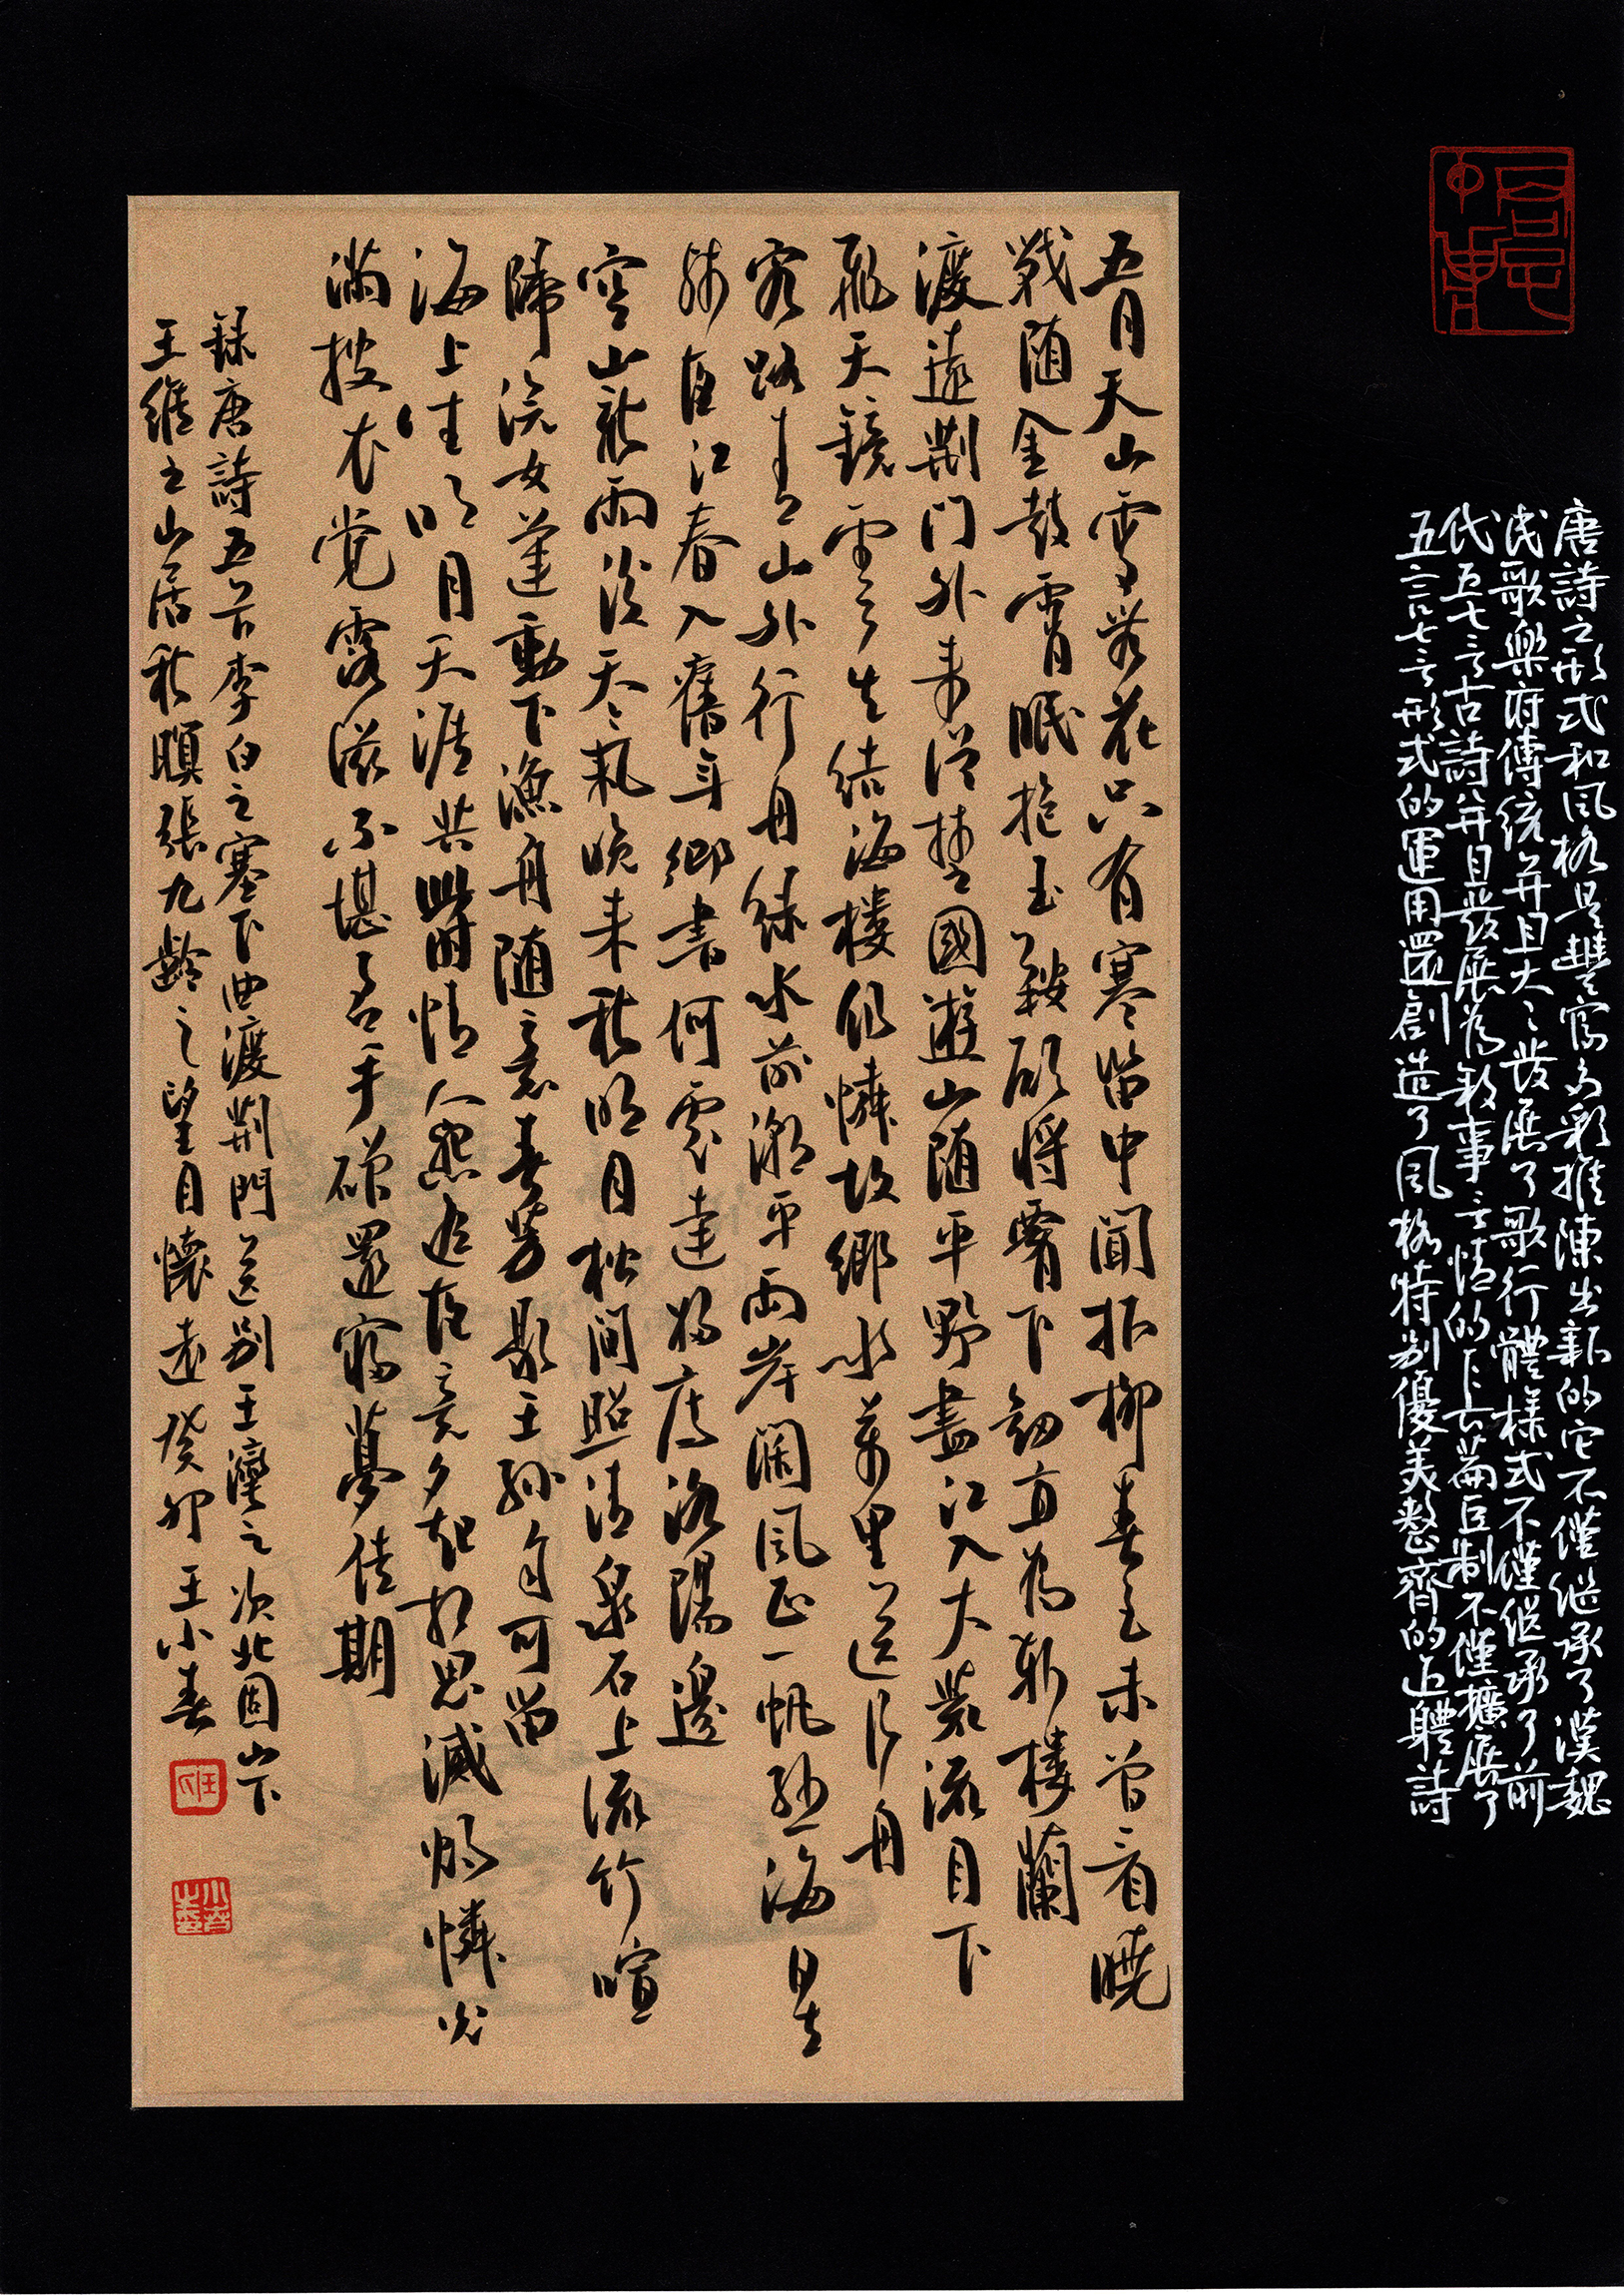 唐詩之形式和风格是豐富多彩推陳出新的它不僅继承了漢魏
民歌樂府傳統并且大大發展了歌行體樣式不僅继承了前
代五七言古詩并且發展為敘事言情的長篇巨制不僅擴展了
五言七言形式的運用還創造了风格特别優美整齊的近體詩
五月天山雪無花只有寒笛中聞折柳春色未曾看曉
戰随金鼓宵眠抱玉鞍願將腰下劍直為斬樓蘭
渡遠荊门外来從楚國遊山随平野盡江入大荒流月下
飛天鏡雲生結海樓仍憐故鄉水萬里送行舟
客路青山外行舟綠水前潮平兩岸闊风正一帆懸海日生
殘夜江春入舊年鄉書何處達歸雁洛陽邊
空山新雨後天氣晚来秋明月松間照清泉石上流竹喧
歸浣女蓮動下漁舟随意春芳歇王孫自可留
海上生明月天涯共此時情人怨遥夜竟夕起相思滅燭憐光
滿披衣覺露滋不堪盈手贈還寢夢佳期
録唐詩五首李白之塞下曲渡荊門送别王灣之次北固山下
王維之山居秋暝張九齡之望月懷遠癸卯王小春
王氏
小春